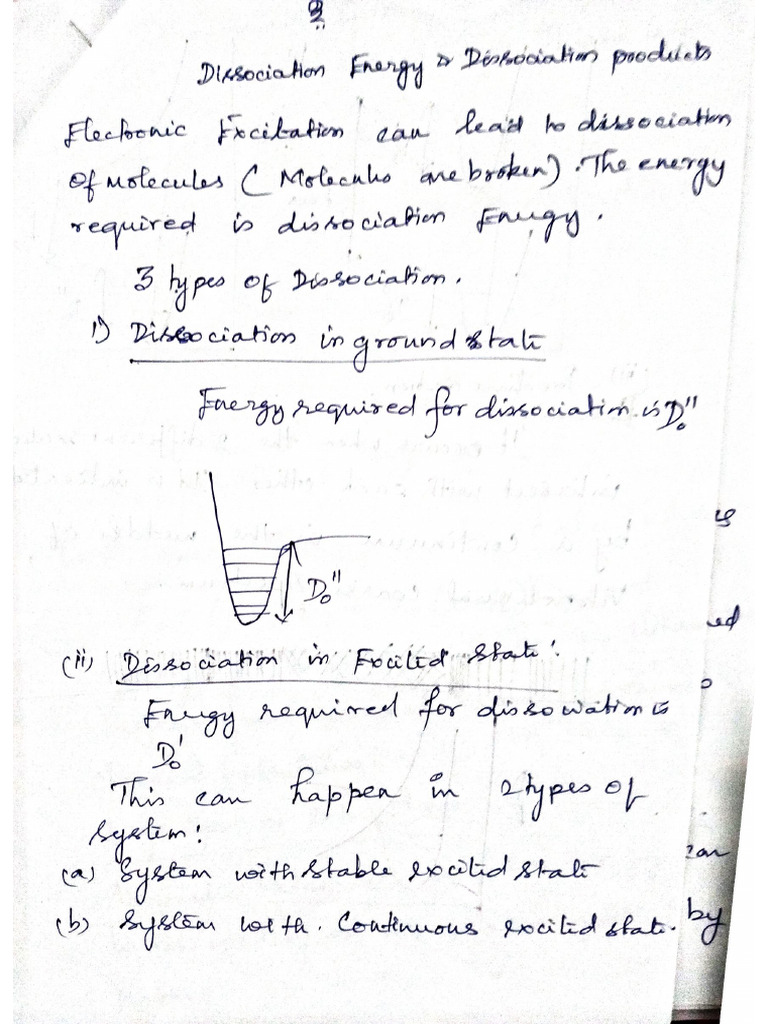 3
Dissociation Energy & Dissociation products
Electronic Excitation can lead to dissociation
of Molecules ( Molecules are broken). The energy
required is dissociation Energy.
3 types of Dissociation.
i) Dissociation in ground state
Energy required for dissociation is D₀"
D₀"
(ii) Dissociation in Excited State:
Energy required for dissociation is
D₀'
This can happen in 2 types of
system:
(a) System with stable excited state
(b) System with. Continuous excited state.
ed
by